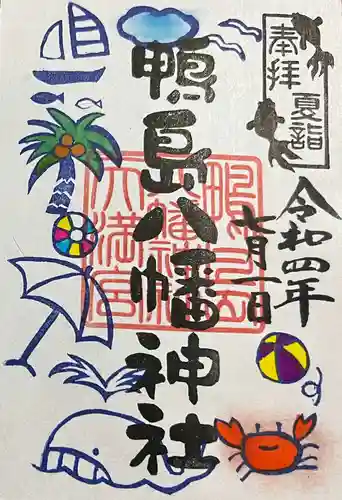 奉拝
夏詣
令和四年
七月一日
鴨島八幡神社
天満宮